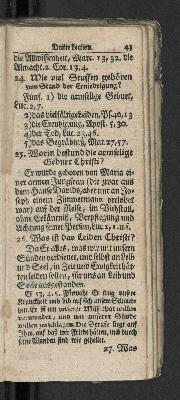 Dritte Lection. 43
die Allwissenheit, Marc. 13, 32. die
Allmacht. 2. Cor. 13, 4.
24. Wie viel Stuffen gehören
zum Stand der Erniedrigung?
Fünf. 1) die armselige Geburt,
Luc. 2, 7.
2) das vielfältige Leiden,
3) die Creutzigung, Apost. 5, 30.
4) der Tod, Luc. 23, 46.
5) das Begräbniß, Mat. 27, 57.
25. Worin bestund die armselige
Geburt Christi?
Er wurde geboren von Maria ei-
ner armen Jungfrau (die zwar aus
dem Hause Davids, aber nur an Jo-
seph einem Zimmermann verlobet
war) auf der Reise, im Viehstall,
ohne Erkäntniß, Verpflegung und
Achtung seiner Person, Luc. 2, 1. u. f.
26. Was ist das Leiden Christi?
Da Er alles, was wir mit unsern
Sünden verdienet, und selbst an Leib
und Seel, in Zeit und Ewigkeit hät-
ten leiden sollen, für uns an Leib und
Seele ausgestanden.
Es. 53, 4. 5. Fürwahr Er trug unsere
Kranckheit und lud auf sich unsere Schmer-
tzen. Er ist um unserer Missethat willen
verwundet, und um unserer Sünde
willen zerschlagen. Die Strafe liegt auf
Ihm, auf daß wir Friede hätten, und durch
seine Wunden sind wir geheilet.
27. Was